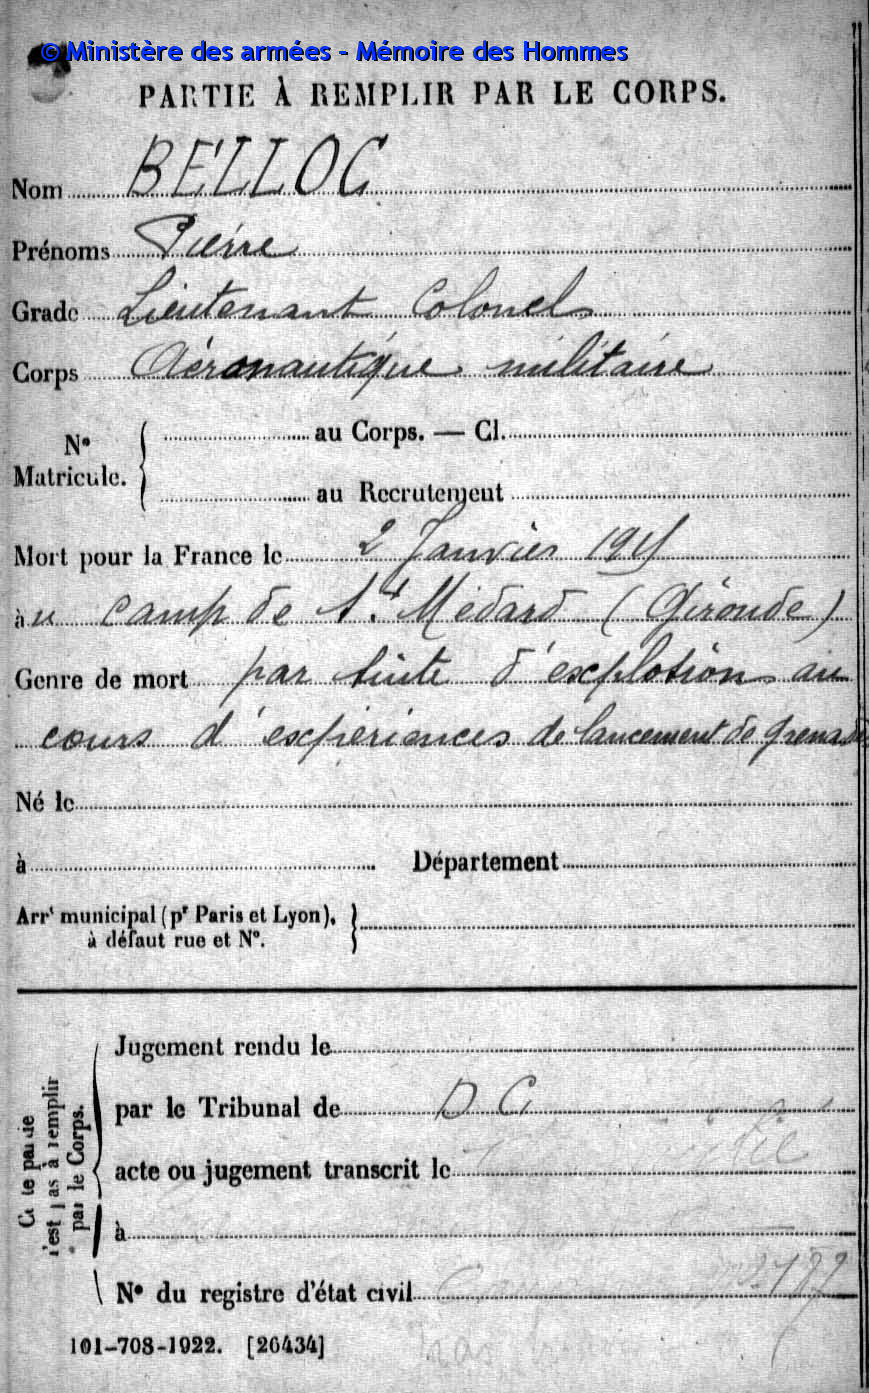 © Ministère des armées - Mémoire des Hommes
PARTIE À REMPLIR PAR LE CORPS.
Nom BELLOC
Prénoms Pierre
Grade Lieutenant Colonel
Corps Aéronautique militaire
N° Matricule. { au Corps. — Cl.
au Recrutement
Mort pour la France le 2 Janvier 1915
au camp de St Médard (Gironde)
Genre de mort par suite d'explosion au
cours d'expériences de lancement de grenades
Né le
à Département
Arrt municipal (pr Paris et Lyon),
à défaut rue et N°.
Cette partie n'est pas à remplir par le Corps.
Jugement rendu le
par le Tribunal de D C
acte ou jugement transcrit le
à
N° du registre d'état civil 187
101-708-1922. [26434]